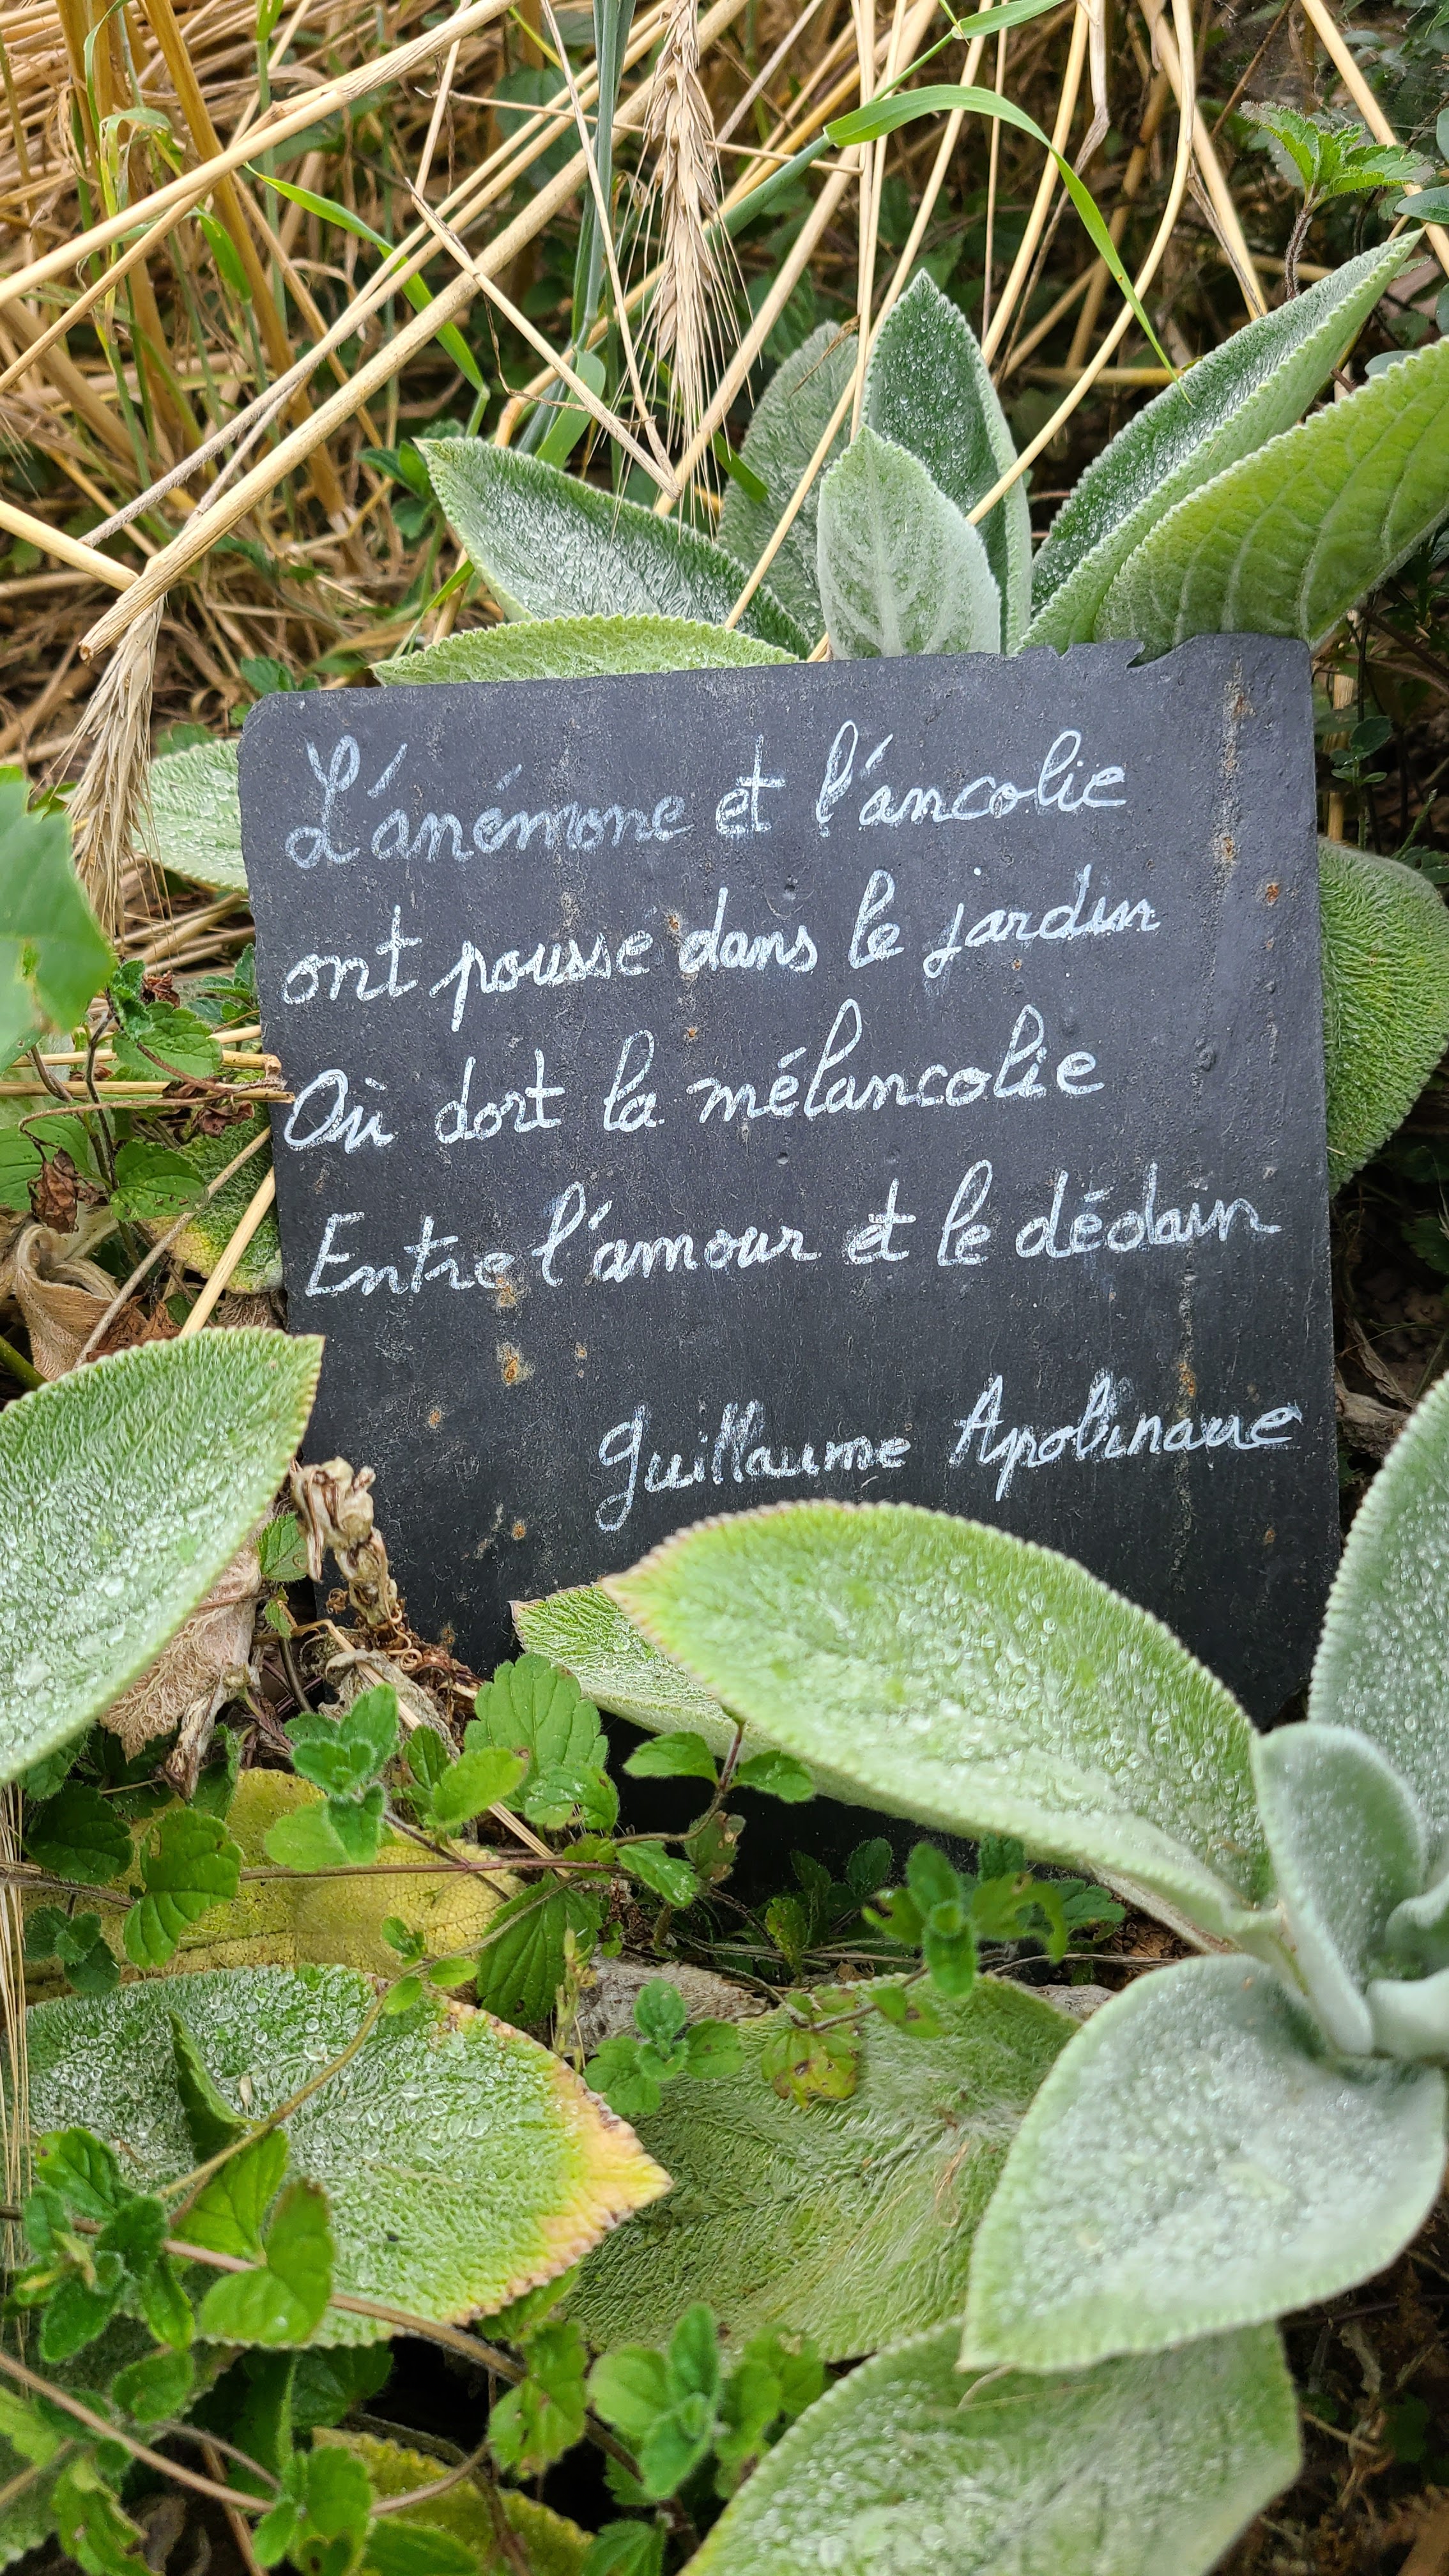 L'anémone et l'ancolie
ont poussé dans le jardin
Où dort la mélancolie
Entre l'amour et le dédain
Guillaume Apolinaire